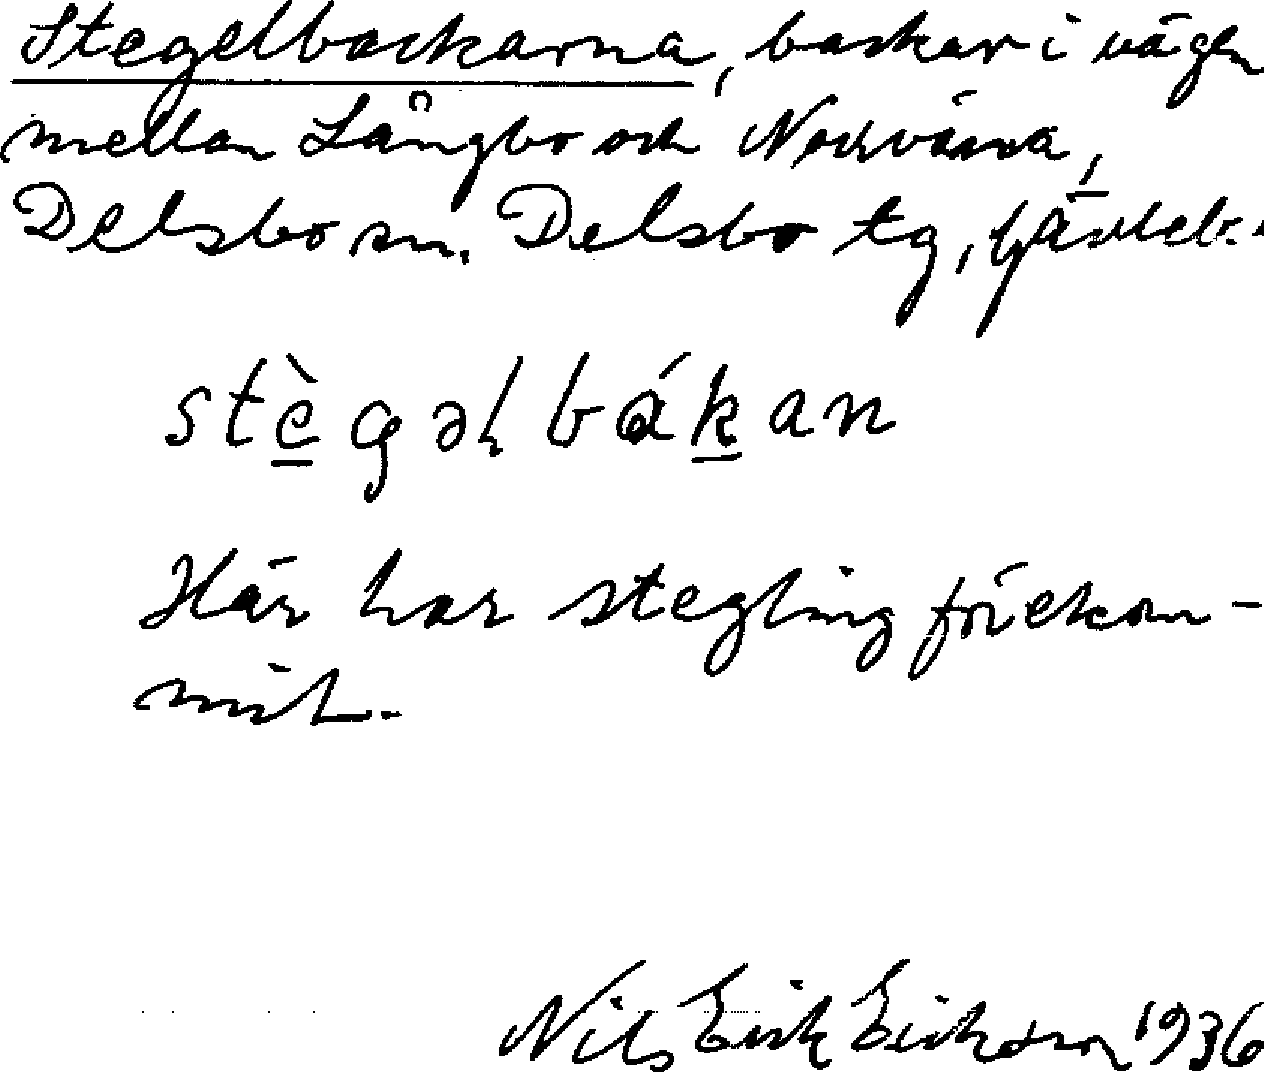 Stegelbackarna, backar i vägen
mellan Långbo och Norrväna,
Delsbo sn. Delsbo tg, Gävleb.
stègəlbákan
Här har stegling förekom-
mit.
Nils Erik Erikson 1936